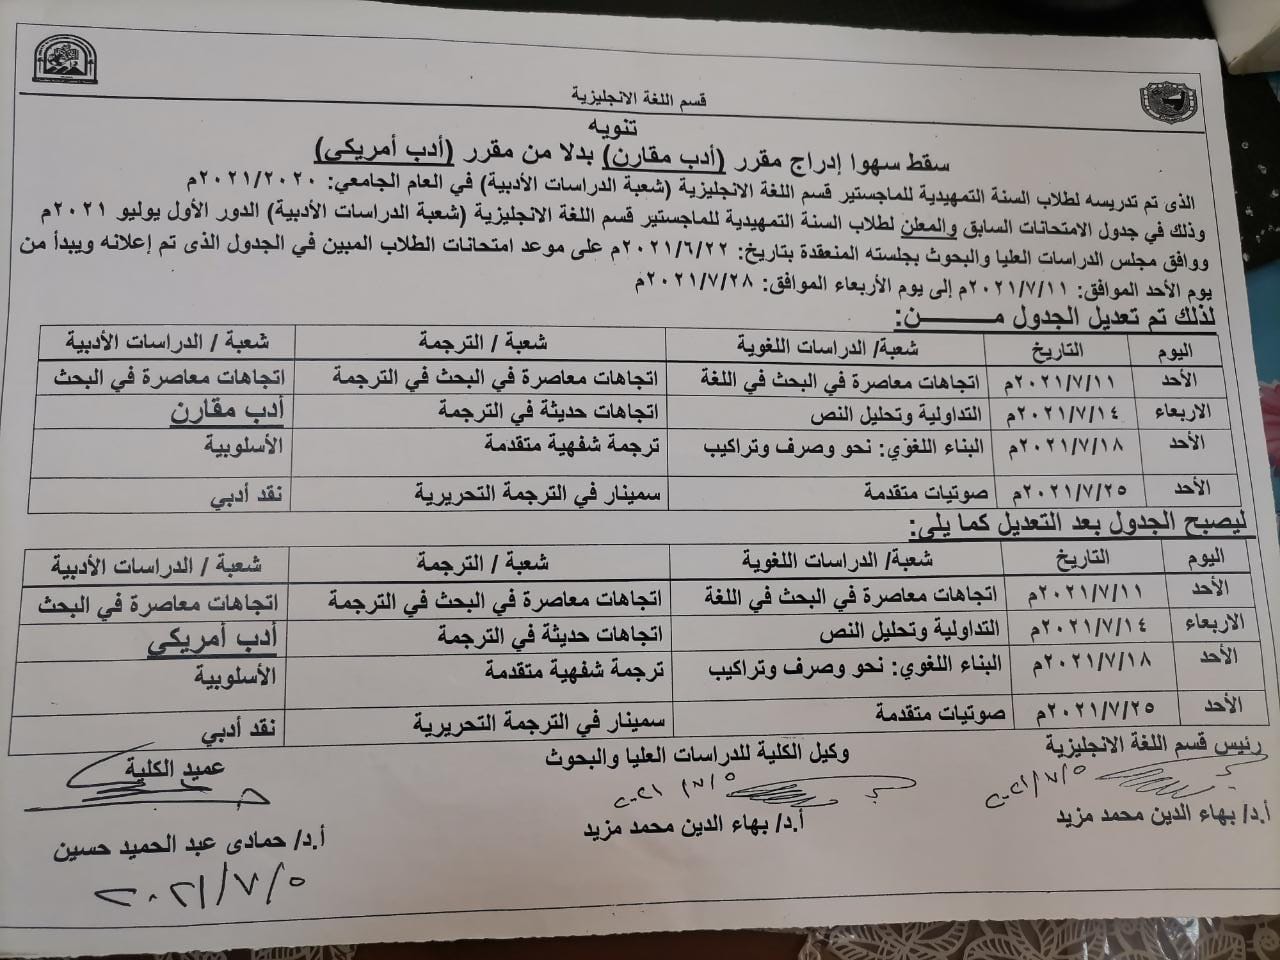 قسم اللغة الانجليزية
تنويه
سقط سهوا إدراج مقرر (أدب مقارن) بدلا من مقرر (أدب أمريكي)
الذى تم تدريسه لطلاب السنة التمهيدية للماجستير قسم اللغة الانجليزية (شعبة الدراسات الأدبية) في العام الجامعي: ٢٠٢١/٢٠٢٠م
وذلك في جدول الامتحانات السابق والمعلن لطلاب السنة التمهيدية للماجستير قسم اللغة الانجليزية (شعبة الدراسات الأدبية) الدور الأول يوليو ٢٠٢١م
ووافق مجلس الدراسات العليا والبحوث بجلسته المنعقدة بتاريخ: ٢٠٢١/٦/٢٢م على موعد امتحانات الطلاب المبين في الجدول الذى تم إعلانه ويبدأ من
يوم الأحد الموافق: ٢٠٢١/٧/١١م إلى يوم الأربعاء الموافق: ٢٠٢١/٧/٢٨م
لذلك تم تعديل الجدول مـــــــن:
اليوم التاريخ شعبة/ الدراسات اللغوية شعبة / الترجمة شعبة / الدراسات الأدبية
الأحد ٢٠٢١/٧/١١م اتجاهات معاصرة في البحث في اللغة اتجاهات معاصرة في البحث في الترجمة اتجاهات معاصرة في البحث
الاربعاء ٢٠٢١/٧/١٤م التداولية وتحليل النص اتجاهات حديثة في الترجمة أدب مقارن
الأحد ٢٠٢١/٧/١٨م البناء اللغوي: نحو وصرف وتراكيب ترجمة شفهية متقدمة الأسلوبية
الأحد ٢٠٢١/٧/٢٥م صوتيات متقدمة سمينار في الترجمة التحريرية نقد أدبي
ليصبح الجدول بعد التعديل كما يلى:
اليوم التاريخ شعبة/ الدراسات اللغوية شعبة / الترجمة شعبة / الدراسات الأدبية
الأحد ٢٠٢١/٧/١١م اتجاهات معاصرة في البحث في اللغة اتجاهات معاصرة في البحث في الترجمة اتجاهات معاصرة في البحث
الاربعاء ٢٠٢١/٧/١٤م التداولية وتحليل النص اتجاهات حديثة في الترجمة أدب أمريكي
الأحد ٢٠٢١/٧/١٨م البناء اللغوي: نحو وصرف وتراكيب ترجمة شفهية متقدمة الأسلوبية
الأحد ٢٠٢١/٧/٢٥م صوتيات متقدمة سمينار في الترجمة التحريرية نقد أدبي
رئيس قسم اللغة الانجليزية وكيل الكلية للدراسات العليا والبحوث عميد الكلية
٢٠٢١/٧/٥ ٢٠٢١/٧/٥
أ.د/ بهاء الدين محمد مزيد أ.د/ بهاء الدين محمد مزيد أ.د/ حمادى عبد الحميد حسين
٢٠٢١/٧/٥